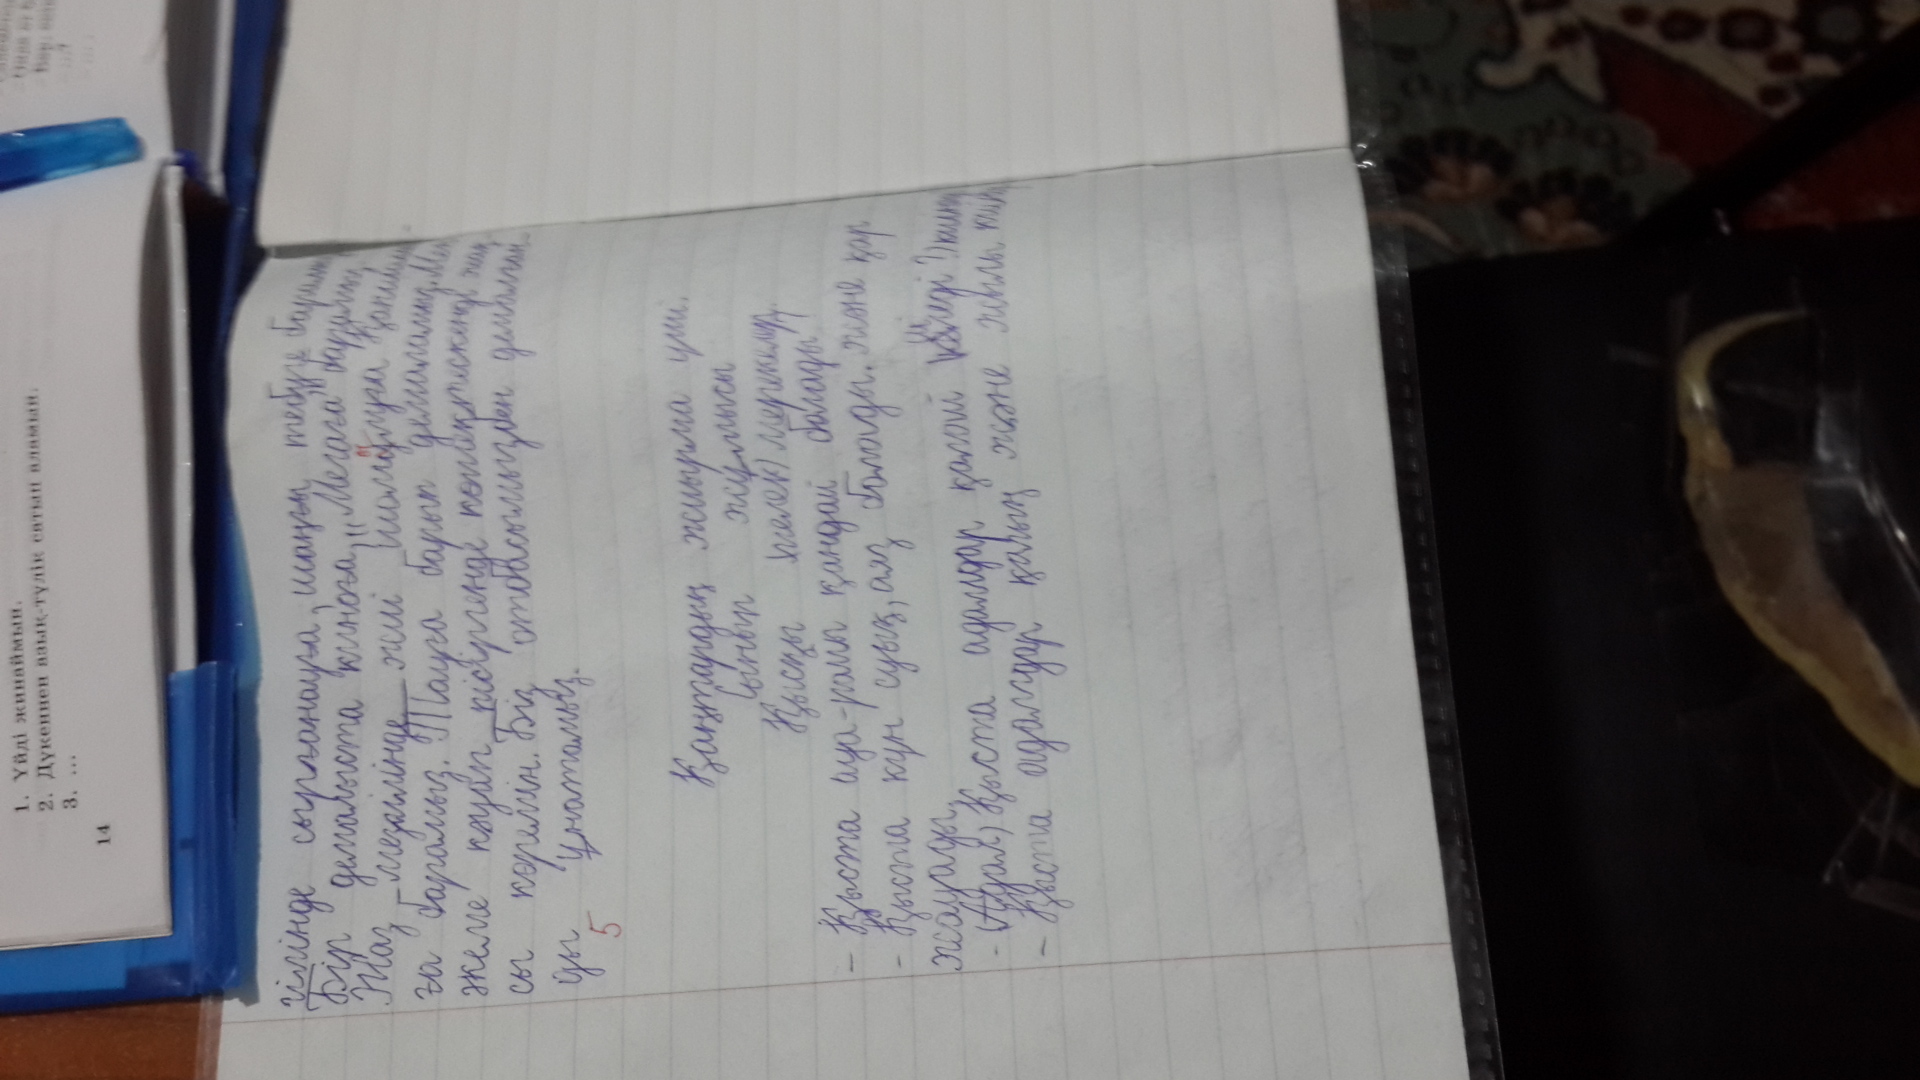 1. Үйді жинаймын.
2. Дүкеннен азық-түлік сатып аламын.
3. ...
14
гілінде сырғанауға, шаңғы тебуге барамыз
Бір демалыста киноға, „Мегаға" барамыз
Жаз мезгілінде жиі шомылуға
ға барамыз. Тауға барып демаламыз. Мен
әкеме кәуап пісіргенде көмектескенді жақ
сы көремін. Біз отбасымызбен демалған-
ды ұнатамыз.
5
Қаңтардың жиырма үші.
Сынып жұмысы
Қысқы мерекелер.
- Қыста ауа-райы қандай болады?
- Қыста күн суық, аяз болады. және қар
жауады.
- (Адам) Қыста адамдар қалай киімді
- Қыста адамдар қалың және жылы